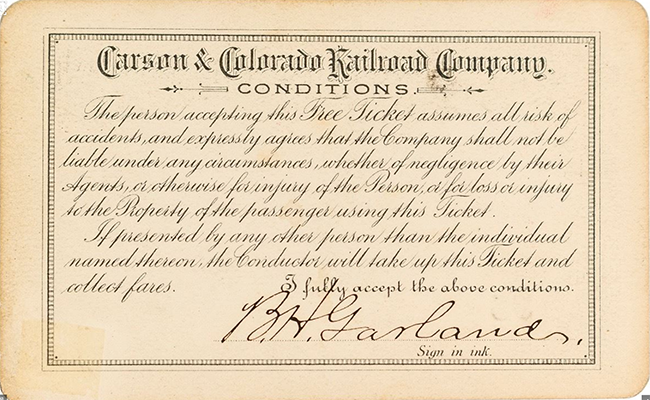 Carson & Colorado Railroad Company.
CONDITIONS.
The person accepting this Free Ticket assumes all risk of
accidents, and expressly agrees that the Company shall not be
liable under any circumstances, whether of negligence by their
Agents, or otherwise for injury of the Person, or for loss or injury
to the Property of the passenger using this Ticket.
If presented by any other person than the individual
named thereon, the Conductor will take up this Ticket and
collect fares. I fully accept the above conditions.
B.H. Garland.
Sign in ink.